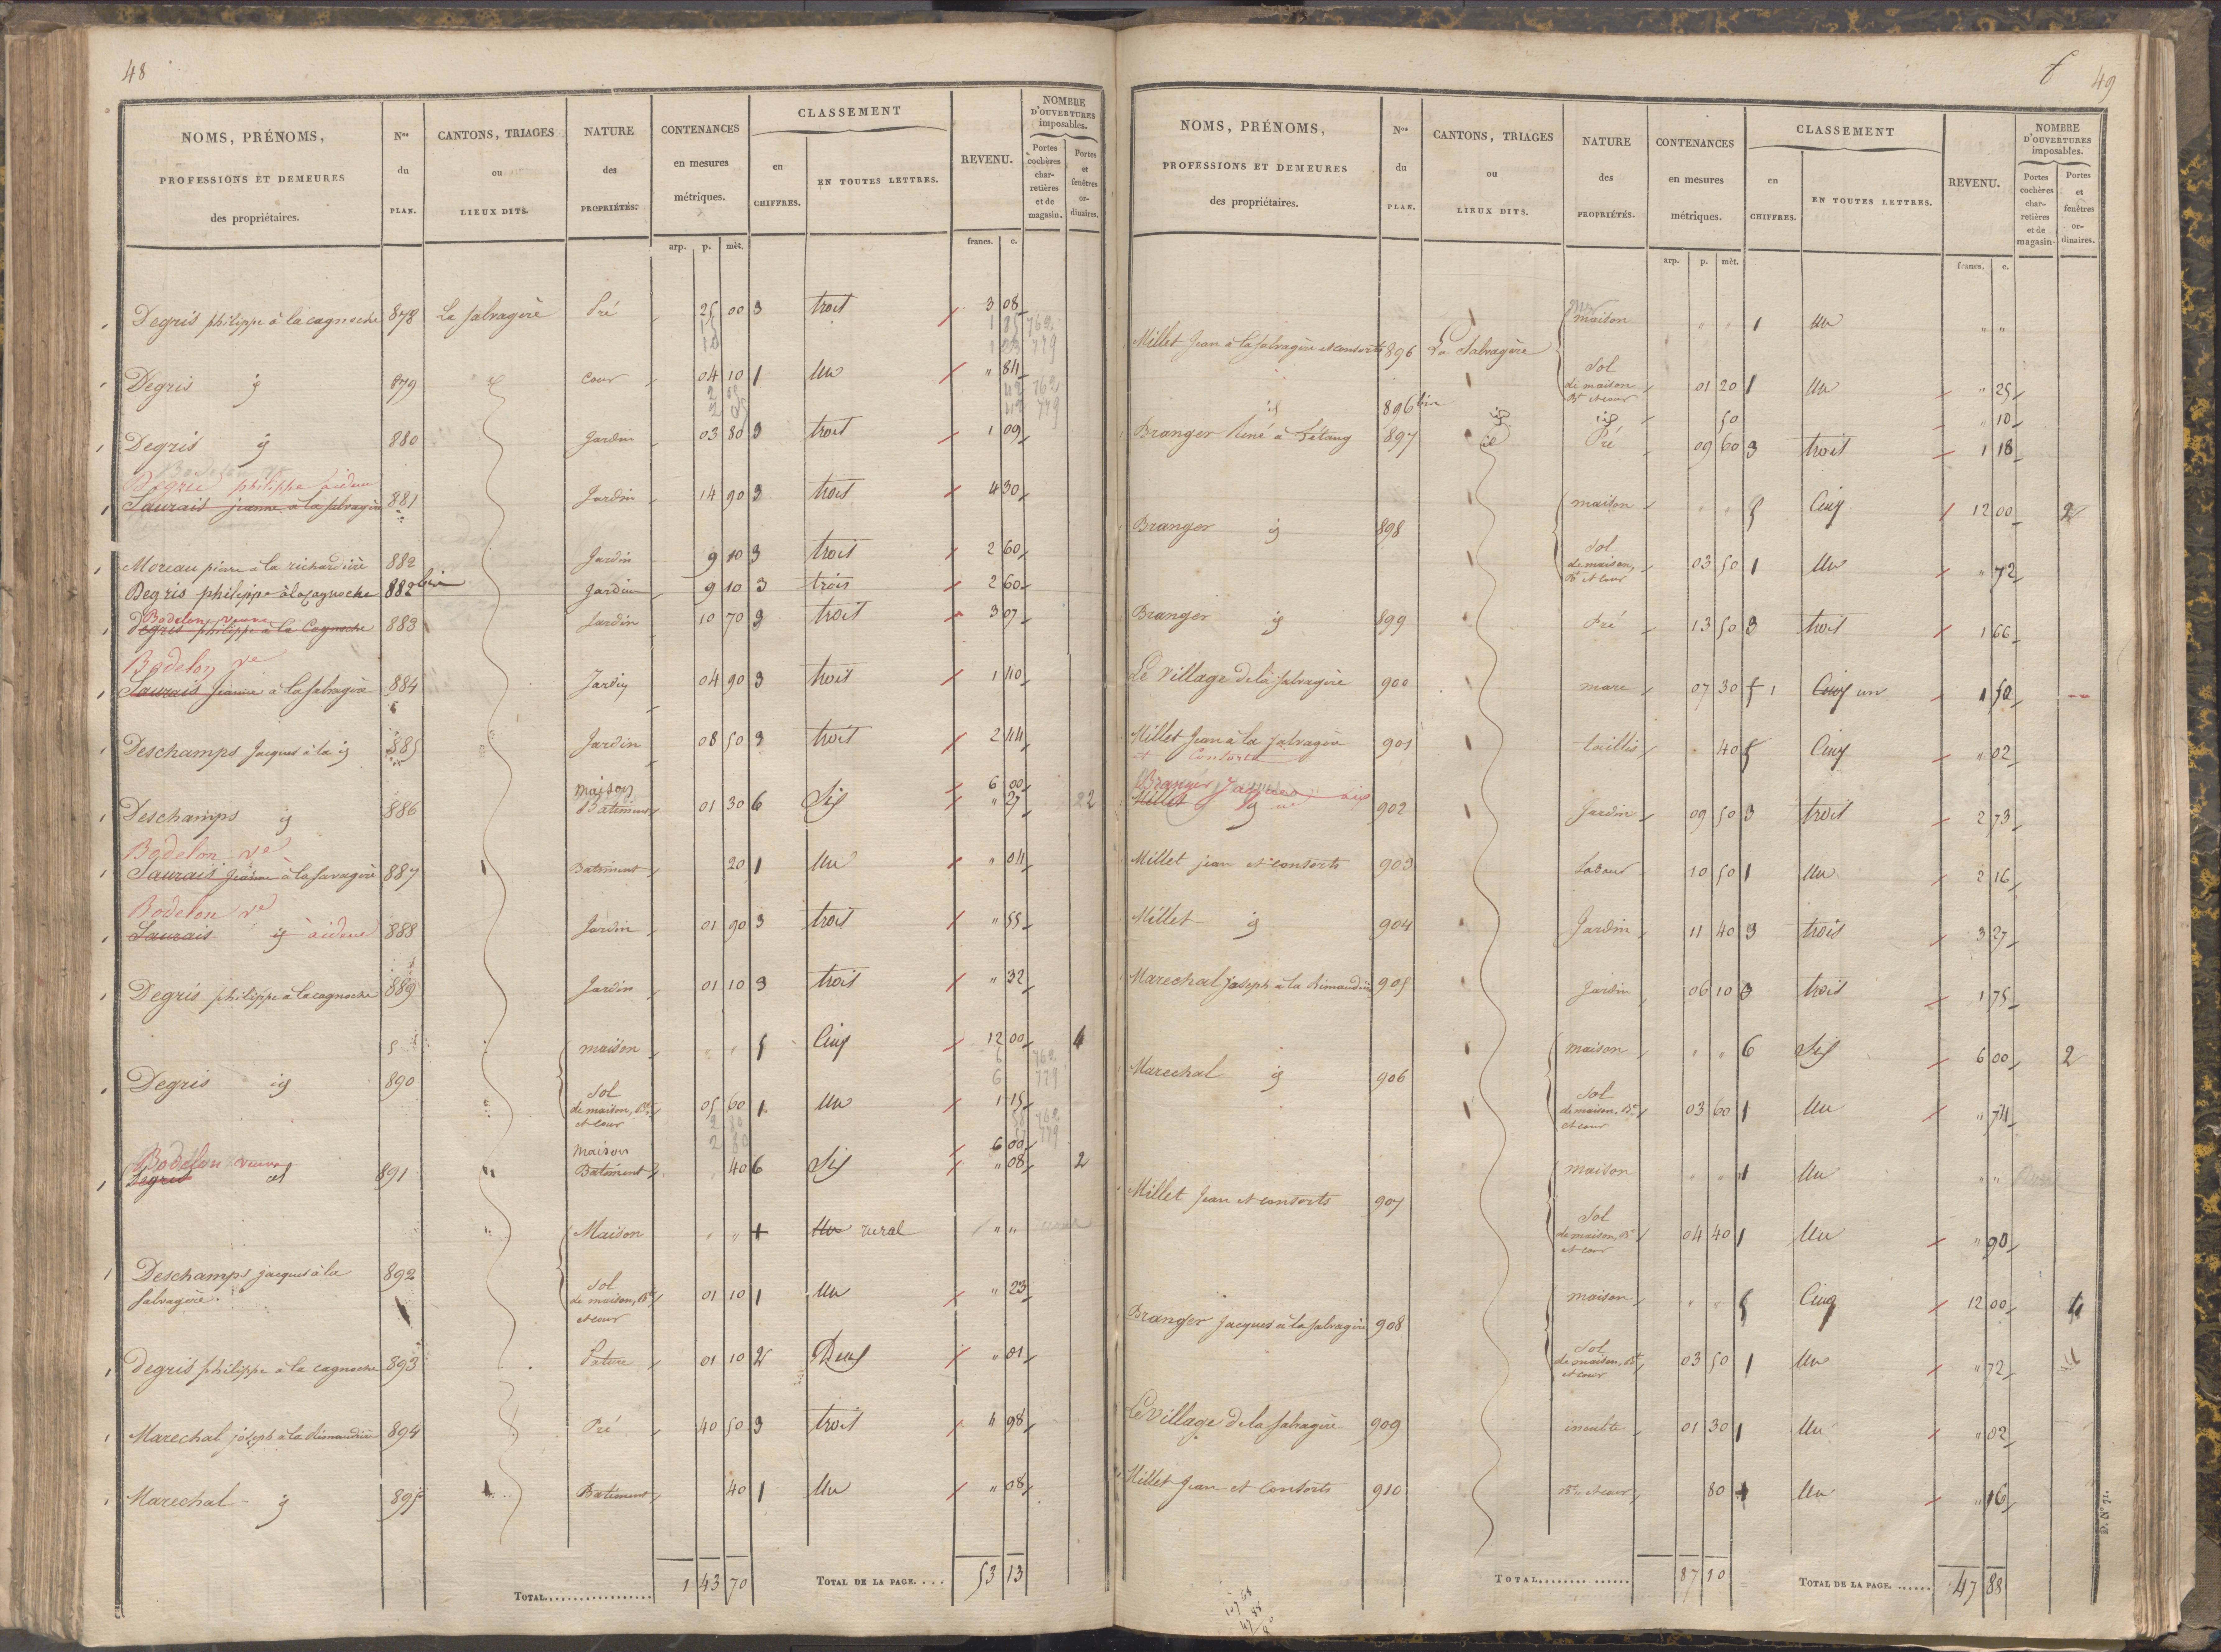 48
NOMS, PRÉNOMS,
PROFESSIONS ET DEMEURES
des propriétaires.
Nos
du
PLAN.
CANTONS, TRIAGES
ou
LIEUX DITS.
NATURE
des
PROPRIÉTÉS.
CONTENANCES
en mesures
métriques.
CLASSEMENT
en
CHIFFRES.
EN TOUTES LETTRES.
REVENU.
NOMBRE
D'OUVERTURES
imposables.
Portes
cochères
char-
retières
et de
magasin.
Portes
et
fenêtres
or-
dinaires.
arp. p. mèt. francs. c.
Degris philippe à la cagnoche 878 La Salvagère Pré 25 00 3 trois 3 08
1 85 762
1 23 779
Degris id 879 cour 04 10 1 Un " 84
42 762
42 779
Degris id 880 Jardin 03 80 3 trois 1 09
Degris philippe
Saurais jeanne à la salvagère 881 Jardin 14 90 3 trois 4 30
Moreau pierre à la richardière 882 Jardin 9 10 3 trois 2 60
Degris philippe à la cagnoche 882 bis Jardin 9 10 3 trois 2 60
Bodelon veuve
degris philippe à la Cagnoche 883 Jardin 10 70 3 trois 3 07
Bodelon ve
Saurais jeanne à la salvagère 884 Jardin 04 90 3 trois 1 40
Deschamps Jacques à la id 885 Jardin 08 50 3 trois 2 44
maison 6 00
Deschamps id 886 Batiment 01 30 6 Six " 27 2
Bodelon ve
Saurais jeanne à la savagère 887 Batiment 20 1 Un " 04
Bodelon ve
Saurais id 888 Jardin 01 90 3 trois " 55
Degris philippe à la cagnoche 889 Jardin 01 10 3 trois " 32
maison " " 5 Cinq 12 00 4
6 762
6 779
Degris id 890
Sol
de maison, Bt
et cour 05 60 1 Un 1 15
maison 6 00
Bodelon veuve
Degris id 891 Batiment 40 6 Six " 08 2
Maison " " + Un rural " "
Deschamps jacques à la
salvagère. 892
Sol
de maison, Bt
et cour 01 10 1 Un " 23
degris philippe à la cagnoche 893 Pature 01 10 2 Deux " 01
Marechal joseph à la Rimaudière 894 Pré 40 50 3 trois 4 98
Marechal id 895 Batiment 40 1 Un " 08
TOTAL 1 43 70 TOTAL DE LA PAGE. 53 13
49
NOMS, PRÉNOMS,
PROFESSIONS ET DEMEURES
des propriétaires.
Nos
du
PLAN.
CANTONS, TRIAGES
ou
LIEUX DITS.
NATURE
des
PROPRIÉTÉS.
CONTENANCES
en mesures
métriques.
CLASSEMENT
en
CHIFFRES.
EN TOUTES LETTRES.
REVENU.
NOMBRE
D'OUVERTURES
imposables.
Portes
cochères
char-
retières
et de
magasin.
Portes
et
fenêtres
or-
dinaires.
arp. p. mèt. francs. c.
maison " " 1 Un " "
Millet Jean à la salvagère et consorts 896 La Salvagère
Sol
de maison
Bt et cour 01 20 1 Un " 25
id 896 bis id id 50 " 10
Branger René à l'étang 897 id Pré 09 60 3 trois 1 18
maison " " 5 Cinq 12 00 2
Branger id 898
Sol
de maison,
Bt et cour 03 50 1 Un " 72
Branger id 899 Pré 13 50 3 trois 1 66
Le Village de la salvagère 900 mare 07 30 5 1 Cinq un 1 50
Millet Jean à la salvagère 901 taillis " 40 5 Cinq " 02
et Consorts
Branger Jacques
Millet id 902 Jardin 09 50 3 trois 2 73
Millet jean et consorts 903 Labour 10 50 1 Un 2 16
Millet id 904 Jardin 11 40 3 trois 3 27
Marechal Joseph à la Rimaudière 905 Jardin 06 10 3 trois 1 75
maison " " 6 Six 6 00 2
Marechal id 906
Sol
de maison, Bt
et cour 03 60 1 Un " 74
maison " " 1 Un " "
Millet Jean et consorts 907
Sol
de maison, Bt
et cour 04 40 1 Un " 90
maison " " 5 Cinq 12 00 4
Branger jacques à la salvagère 908
Sol
de maison, Bt
et cour 03 50 1 Un " 72
Le Village de la salvagère 909 inculte 01 30 1 Un " 02
Millet Jean et Consorts 910 Bt et cour 80 1 Un " 16
TOTAL 87 10 TOTAL DE LA PAGE. 47 88
D. N° 71.